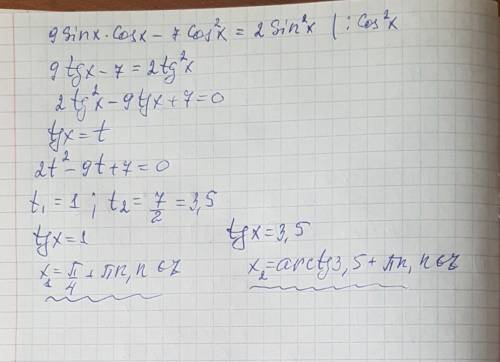 9 Sinx·Cosx - 7 Cos²x = 2 Sin²x | : Cos²x
9 tgx - 7 = 2 tg²x
2 tg²x - 9 tgx + 7 = 0
tgx = t
2t² - 9t + 7 = 0
t₁ = 1 ; t₂ = 7/2 = 3,5
tgx = 1 tgx = 3,5
x₁ = π/4 + πn, n ∈ Z x₂ = arctg 3,5 + πn, n ∈ Z